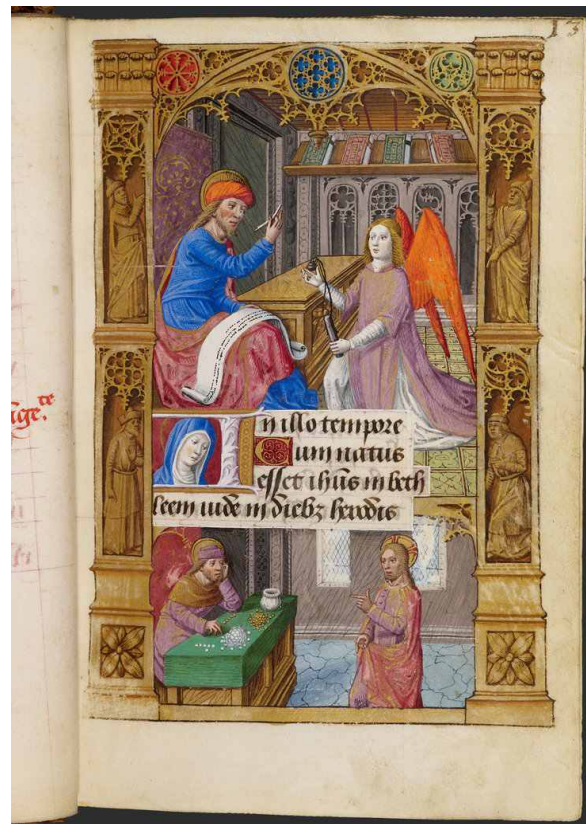 13
te
n illo tempore
Cum natus
esset ihus in beth
leem iude in diebz herodis